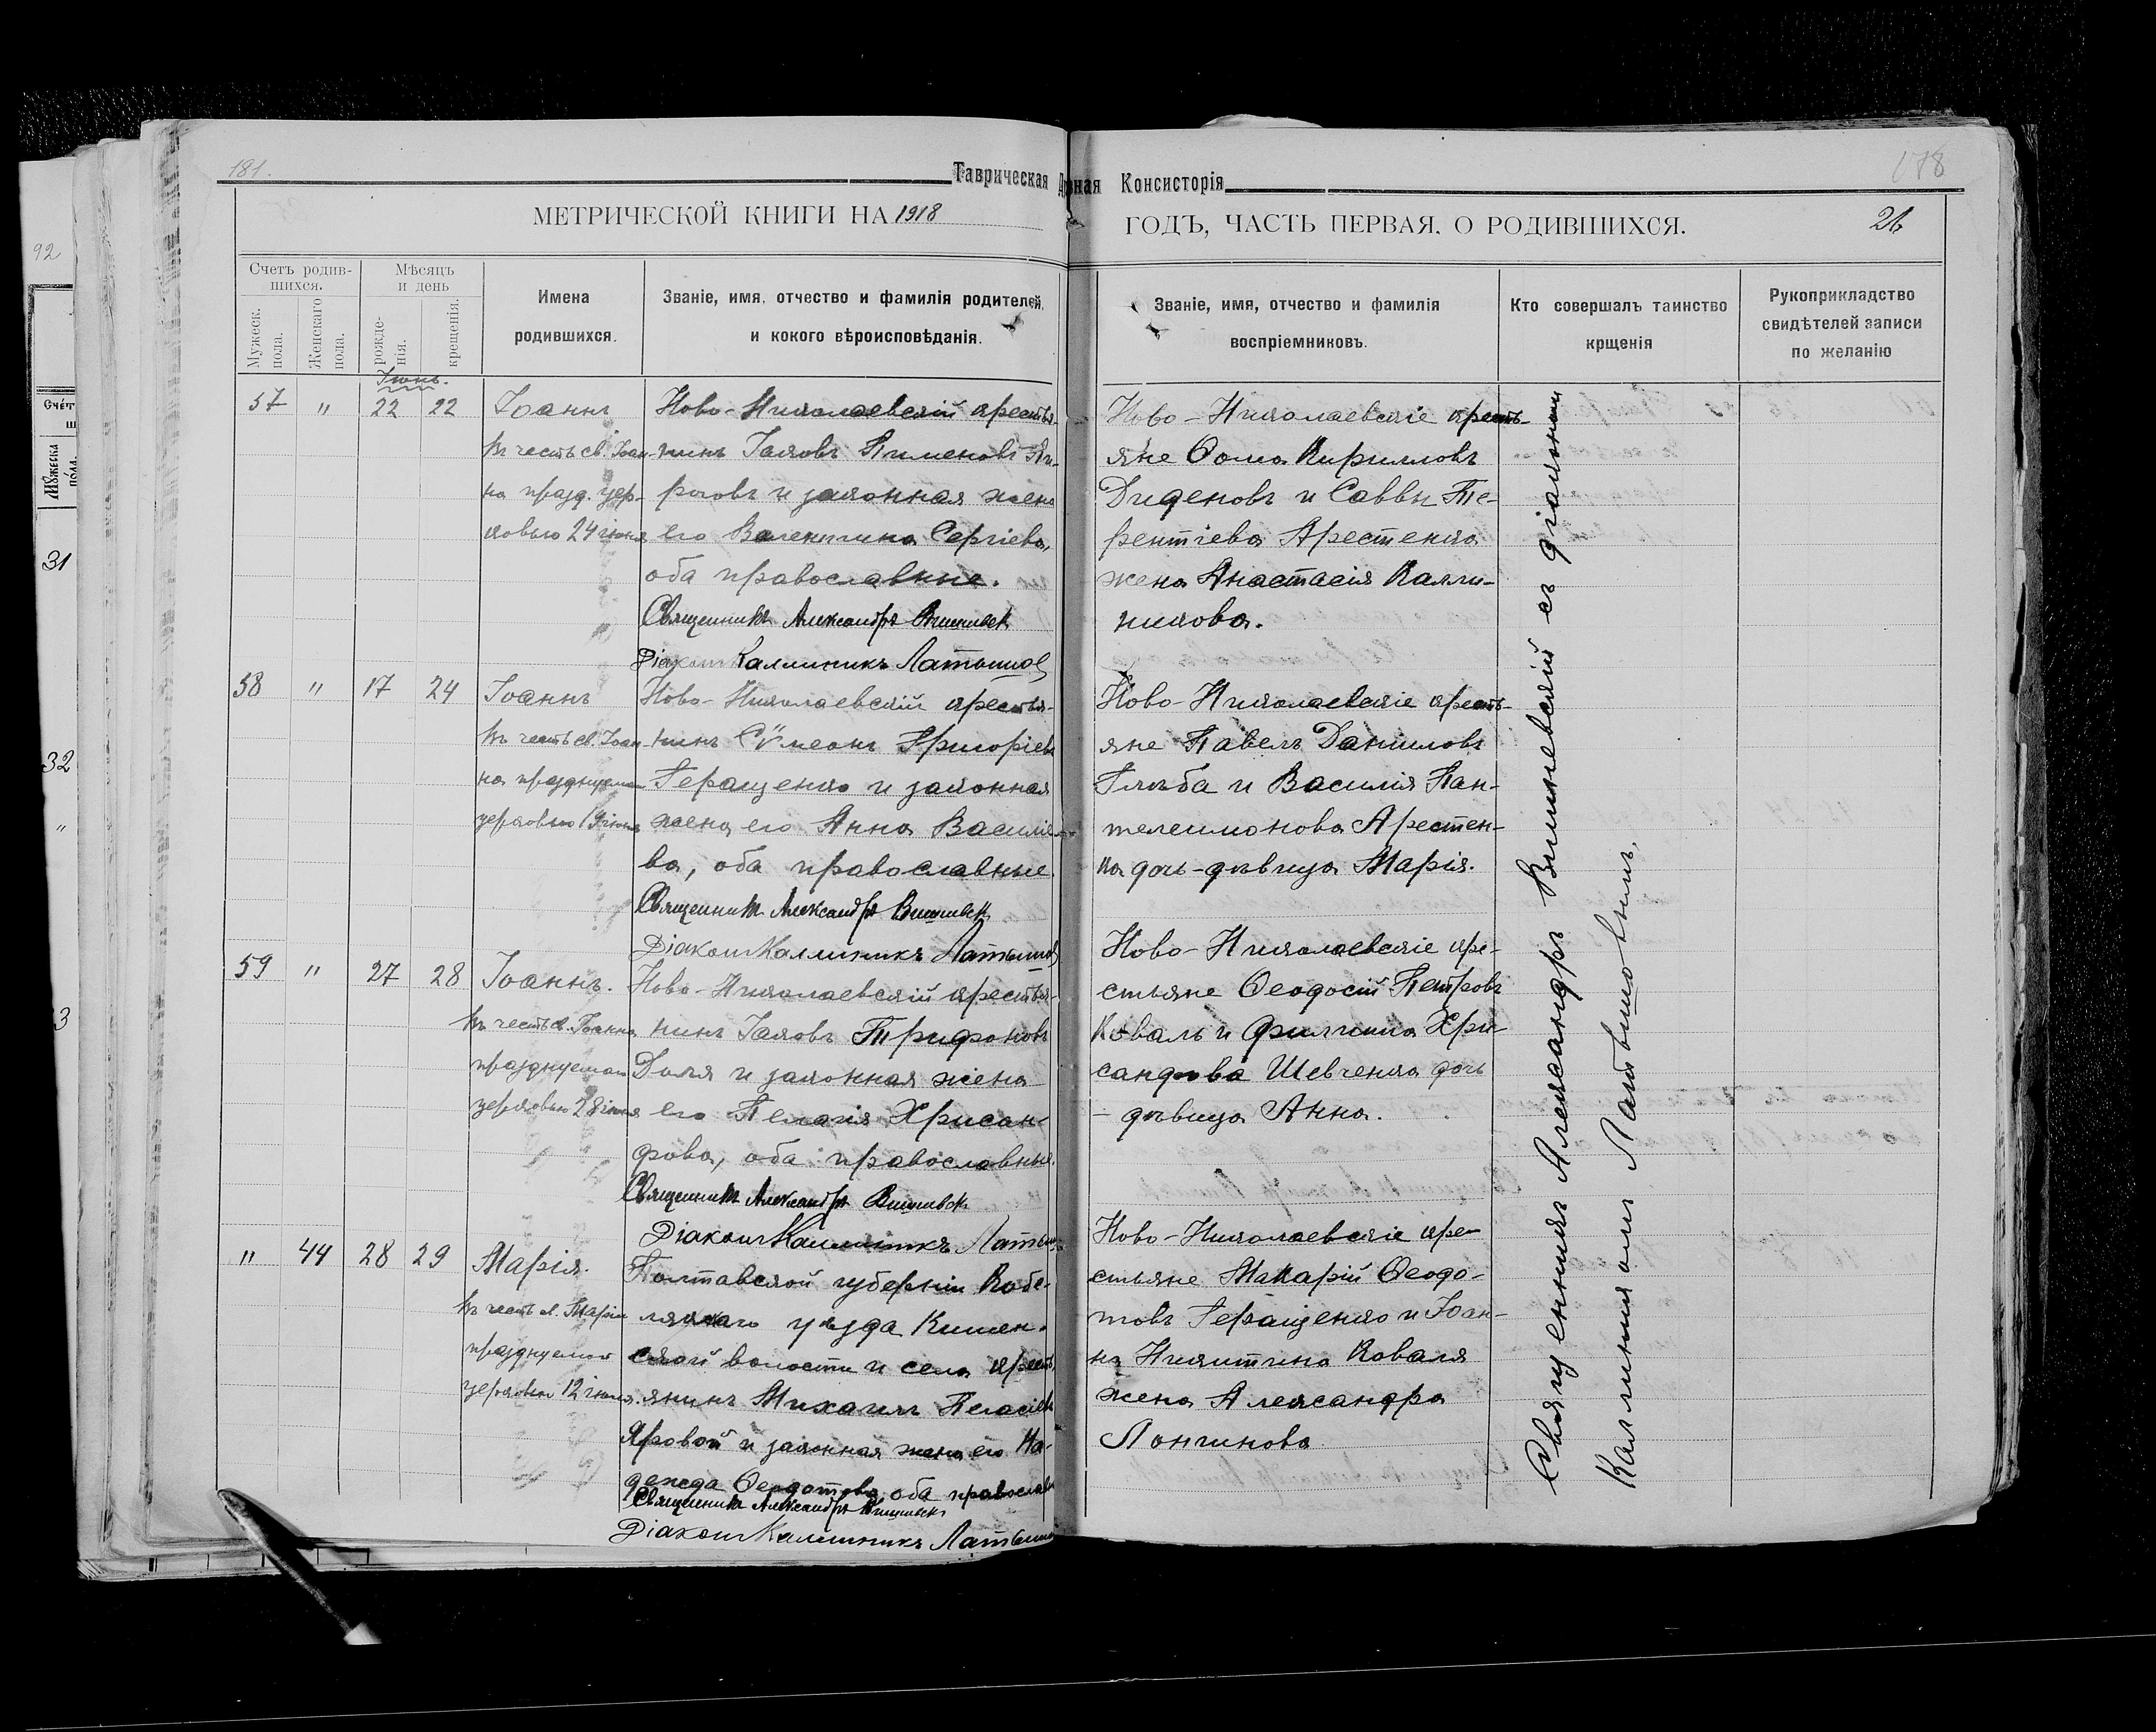 181.
178
Таврическая Д
вная Консисторія
МЕТРИЧЕСКОЙ КНИГИ НА 1918
ГОДЪ, ЧАСТЬ ПЕРВАЯ, О РОДИВШИХСЯ.
26
Счетъ родив-
шихся.
Мужеск.
пола.
Женскаго
пола.
Мѣсяцъ
и день
рожде-
нія.
крещенія.
Имена
родившихся.
Званіе, имя, отчество и фамилія родителей,
и кокого вѣроисповѣданія.
Званіе, имя, отчество и фамилія
воспріемниковъ.
Кто совершалъ таинство
крщенія
Рукоприкладство
свидѣтелей записи
по желанію
Іюнь.
57 " 22 22
Іоаннъ
въ честь св. Іоан-
на празд. цер-
ковью 24 іюня
Ново-Николаевскій крестья-
нинъ Іаковъ Пименовъ
и законная жена
его Валентина Сергіева,
оба православные.
Священникъ Александръ
Діаконъ Каллиникъ Латышов
Ново-Николаевскіе кресть-
яне Ѳома Кирилловъ
Диденовъ и Саввы Те-
рентіева Арестенка
жена Анастасія Калли-
никова.
58 " 17 24
Іоаннъ
въ честь св. Іоан-
на празднуемаго
церковью 19 іюня
Ново-Николаевскій крестья-
нинъ Сѵмеонъ Григоріевъ
Геращенко и законная
жена его Анна Василіе-
ва, оба православные.
Священникъ Александръ
Діаконъ Каллиникъ Латышов
Ново-Николаевскіе кресть-
яне Павелъ Даниловъ
Глѣба и Василія Пан-
телеимонова Арестен-
ка дочь-дѣвица Марія.
59 " 27 28
Іоаннъ.
въ честь св. Іоанна
празднуемаго
церковью 28 іюня
Ново-Николаевскій крестья-
нинъ Іаковъ Трифоновъ
Доля и законная жена
его Пелагія Хрисан-
фова, оба православные.
Священникъ Александръ
Діаконъ Каллиникъ Латыш
Ново-Николаевскіе кре-
стьяне Ѳеодосій Петровъ
Коваль и Филиппа Хри-
санфова Шевченка дочь
- дѣвица Анна.
" 44 28 29
Марія.
въ честь св. Маріи
празднуемой
церковью 12 іюля.
Полтавской губерніи Кобе-
лякскаго уѣзда Кишен-
ской волости и села кресть-
янинъ Михаилъ
Яровой и законная жена его На-
дежда Ѳеодотова, оба православн
Священникъ Александръ
Діаконъ Каллиникъ Латыш
Ново-Николаевскіе кре-
стьяне Макарій Ѳеодо-
товъ Геращенко и Іоан-
на Никитина Коваля
жена Александра
Лонгинова
Священникъ Александръ Вишневскій съ діакономъ
Каллиникомъ Латышовымъ.
92
31
32
"
3